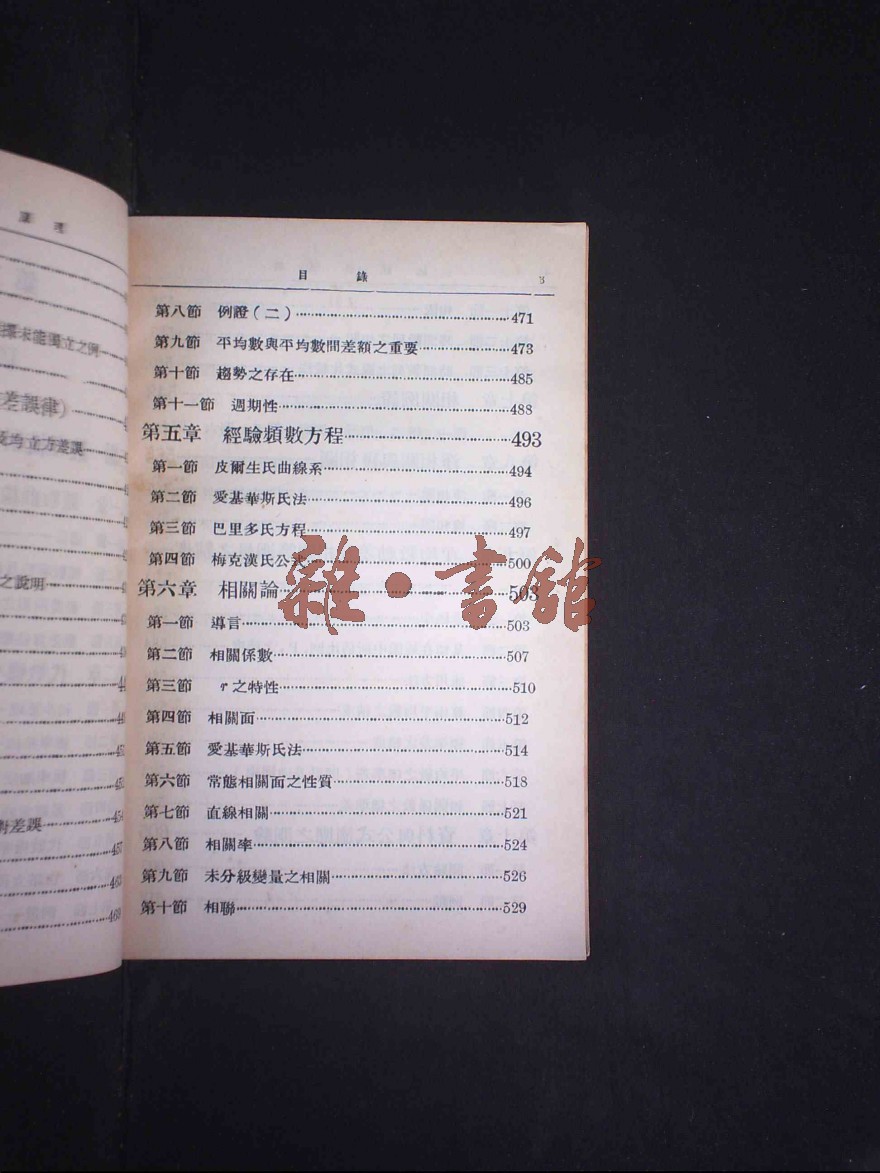 原理
環未能獨立之例
差誤律)
均立方差誤
之說明
對差誤
457
463
469
目錄 3
第八節 例證(二)……471
第九節 平均數與平均數間差額之重要……473
第十節 趨勢之存在……485
第十一節 週期性……488
第五章 經驗頻數方程……493
第一節 皮爾生氏曲線系……494
第二節 愛基華斯氏法……496
第三節 巴里多氏方程……497
第四節 梅克漢氏公式……500
第六章 相關論……503
第一節 導言……503
第二節 相關係數……507
第三節 r之特性……510
第四節 相關面……512
第五節 愛基華斯氏法……514
第六節 常態相關面之性質……518
第七節 直線相關……521
第八節 相關率……524
第九節 未分級變量之相關……526
第十節 相聯……529
雜·書館